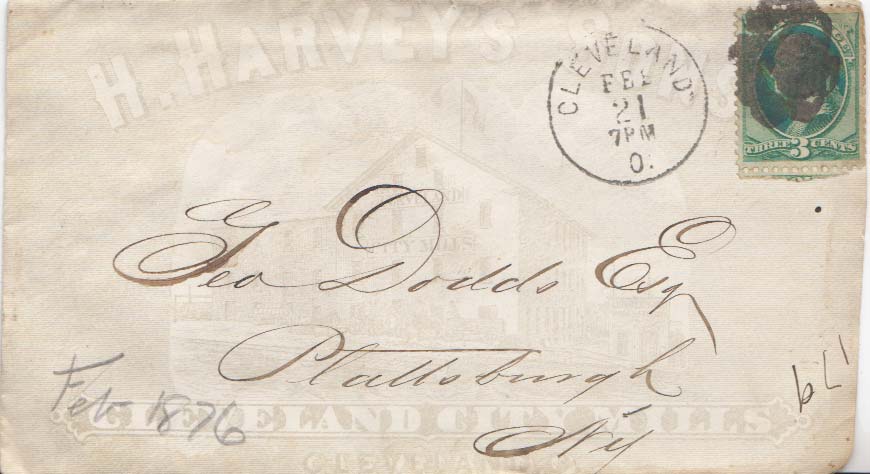 H. HARVEY'S & SONS
CLEVELAND
FEB
21
7PM
O.
THREE 3 CENTS
CLEVELAND
CITY MILLS
Geo Dodds Esq
Plattsburgh
NY
Feb 1876
CLEVELAND CITY MILLS
CLEVELAND, O.